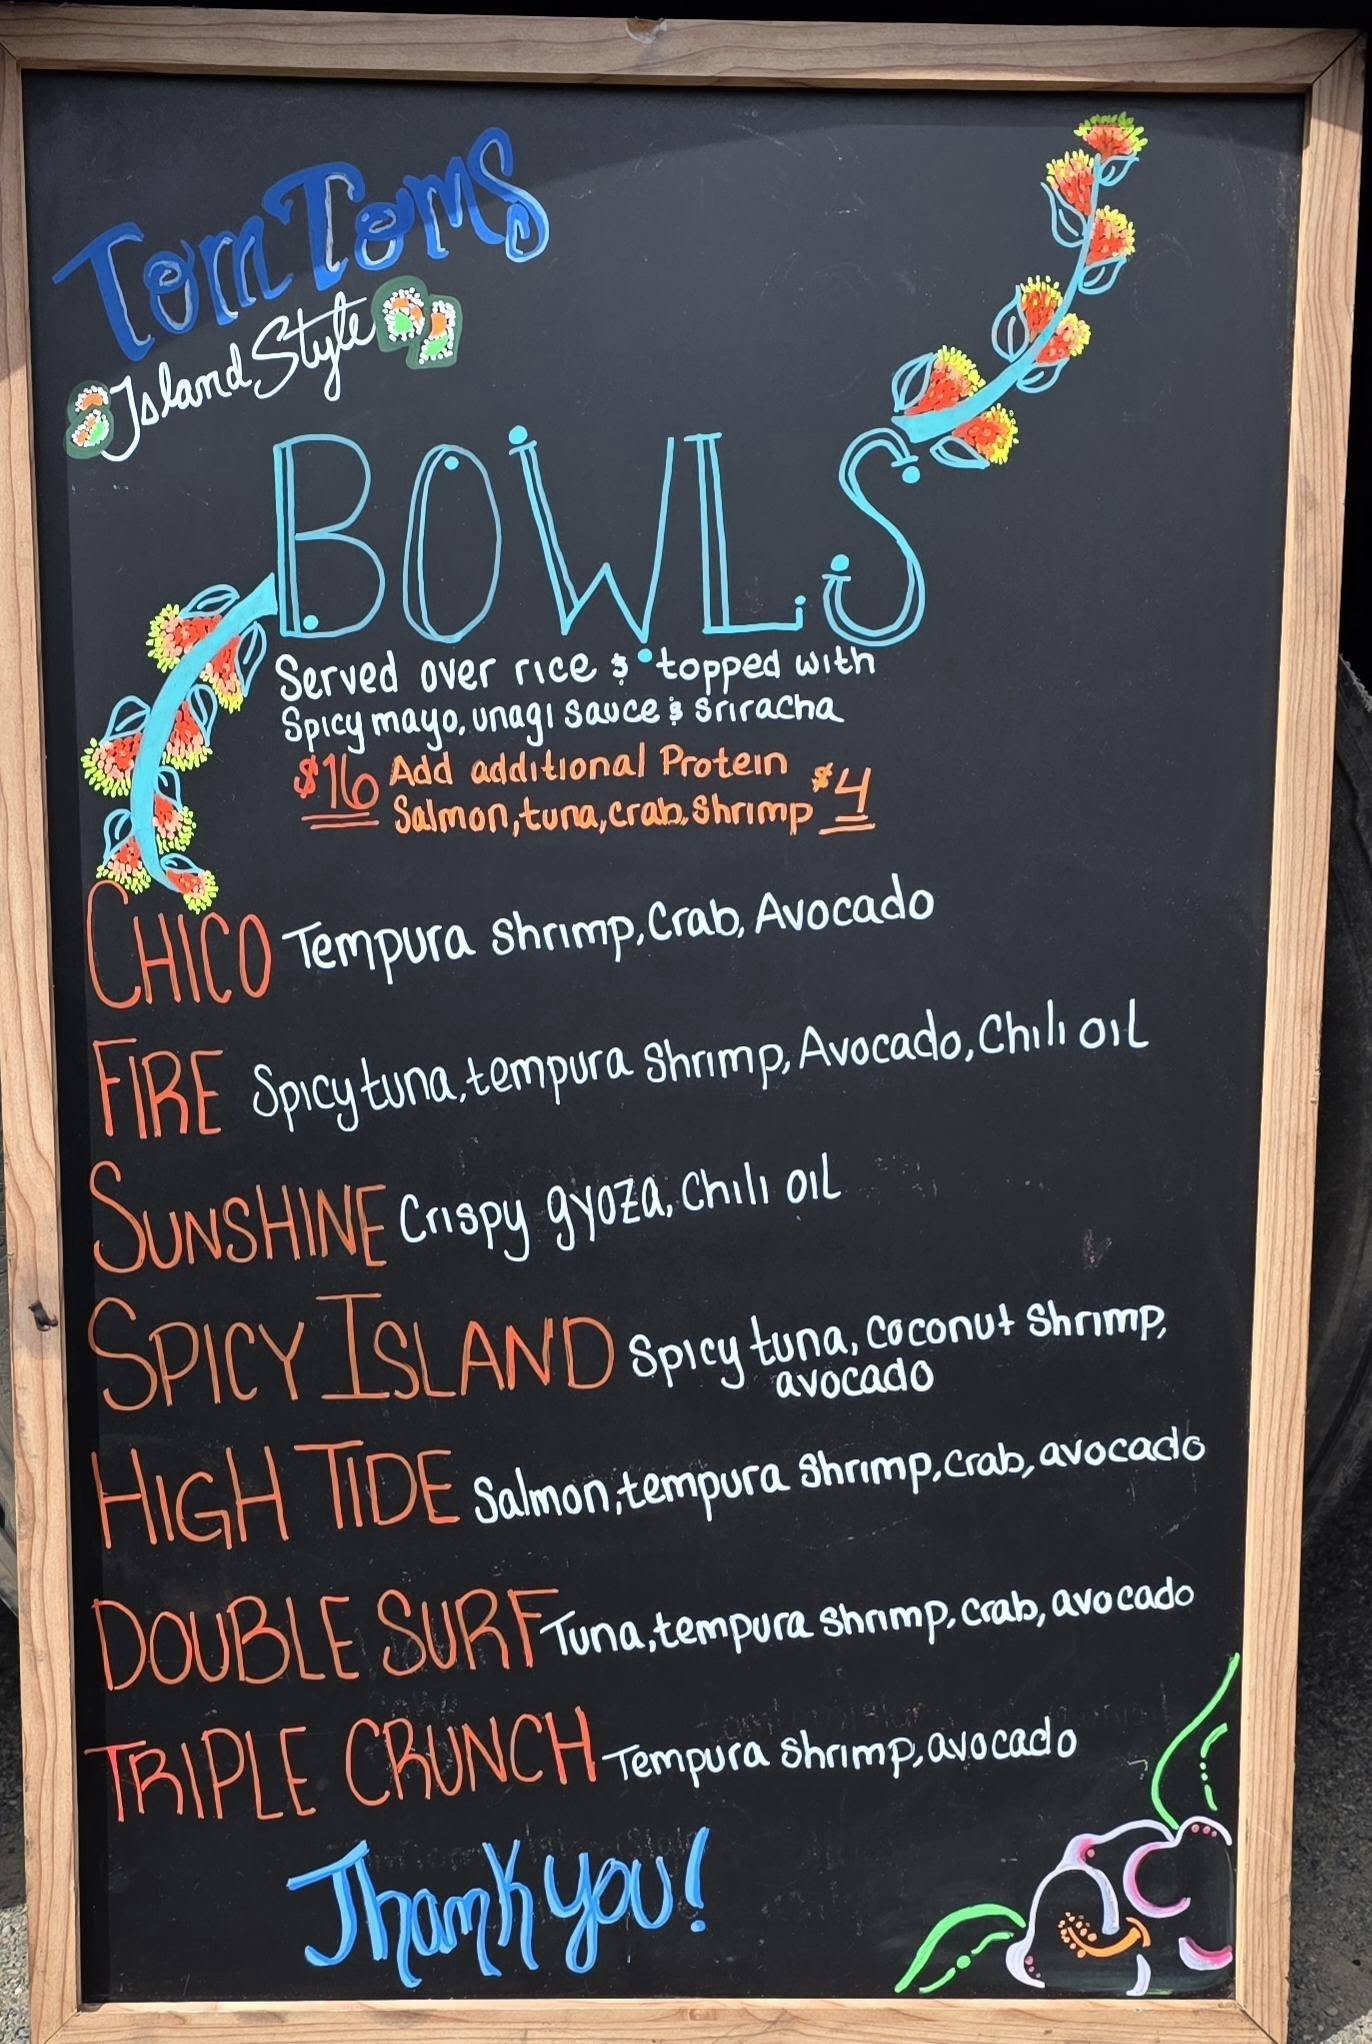 Tom Toms
Island Style
BOWLS
Served over rice & topped with
Spicy mayo, unagi sauce & sriracha
$16 Add additional Protein $4
Salmon, tuna, crab, shrimp
CHICO Tempura shrimp, Crab, Avocado
FIRE Spicy tuna, tempura shrimp, Avocado, Chili oil
SUNSHINE Crispy gyoza, Chili oil
SPICY ISLAND Spicy tuna, coconut shrimp,
avocado
HIGH TIDE Salmon, tempura shrimp, crab, avocado
DOUBLE SURF Tuna, tempura shrimp, crab, avocado
TRIPLE CRUNCH Tempura shrimp, avocado
Thank you!